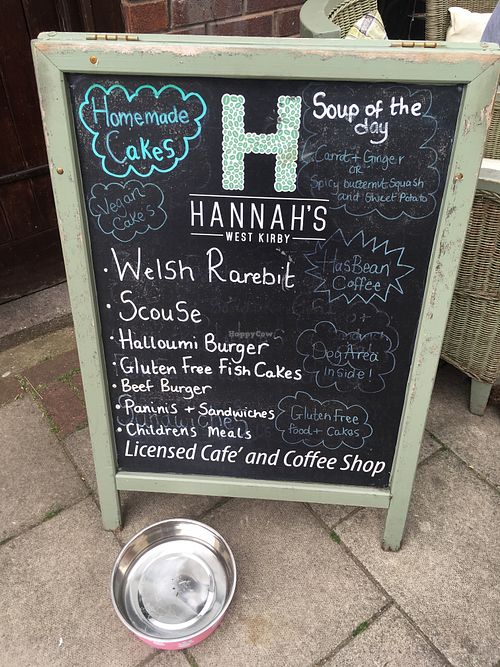 Homemade
Cakes
Vegan
Cakes
H
HANNAH'S
WEST KIRBY
Soup of the
day
Carrot + Ginger
OR
Spicy butternut Squash
and Sweet Potato
HasBean
Coffee
Dog Area
Inside!
Gluten Free
food + Cakes
· Welsh Rarebit
· Scouse
· Halloumi Burger
· Gluten Free Fish Cakes
· Beef Burger
· Paninis + Sandwiches
· Childrens Meals
Licensed Cafe' and Coffee Shop
HappyCow